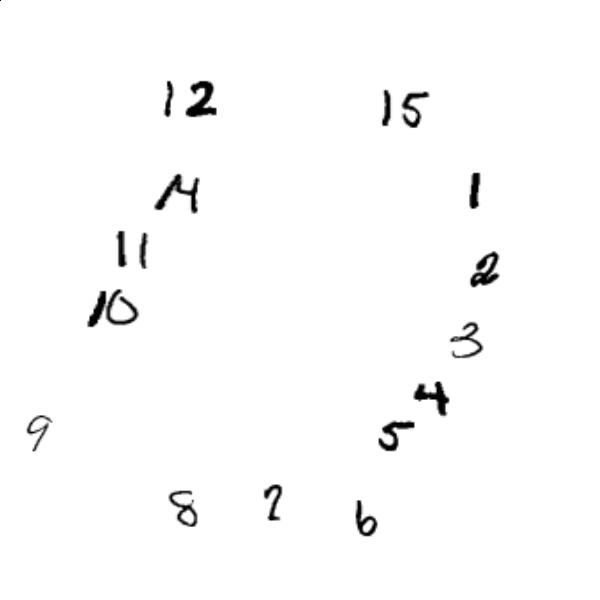 12 15
14 1
11
2
10
3
4
9 5
8 7 6